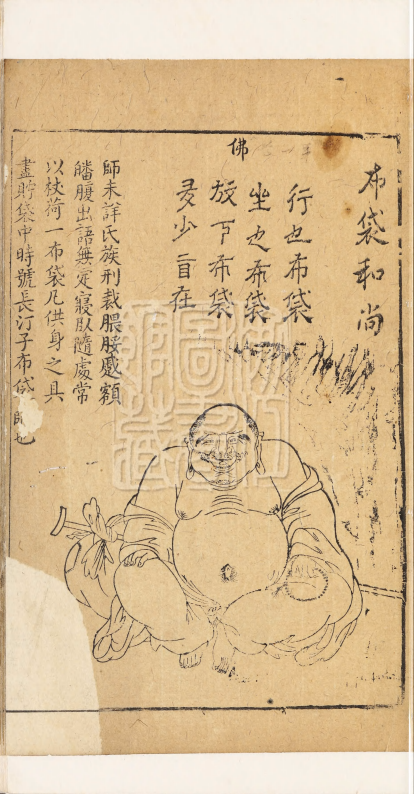 布袋和尚
佛
行也布袋
坐也布袋
放下布袋
多少自在
師未詳氏族形裁腲脮蹙額
皤腹出語無定寢臥隨處常
以杖荷一布袋凡供身之具
盡貯袋中時號長汀子布袋師也